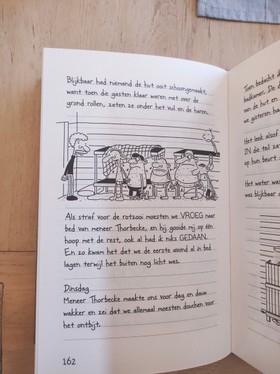 Blijkbaar had niemand de hut ooit schoongemaakt,
want toen de gasten klaar waren met over de
grond rollen, zaten ze onder het vuil en de haren.
Als straf voor de rotzooi moesten we VROEG naar
bed van meneer Thorbecke, en hij gooide mij op één
hoop met de rest, ook al had ik niks GEDAAN.
En zo kwam het dat we de eerste avond al in bed
lagen terwijl het buiten nog licht was.
Dinsdag
Meneer Thorbecke maakte ons voor dag en dauw
wakker en zei dat we allemaal moesten douchen voor
het ontbijt.
162
Toen bedacht d
badkamer. De d
van de hut en
we gisteren ha
Het leek alsof
IN die teil za
op hun beurt
Het water was
was blijkbaar